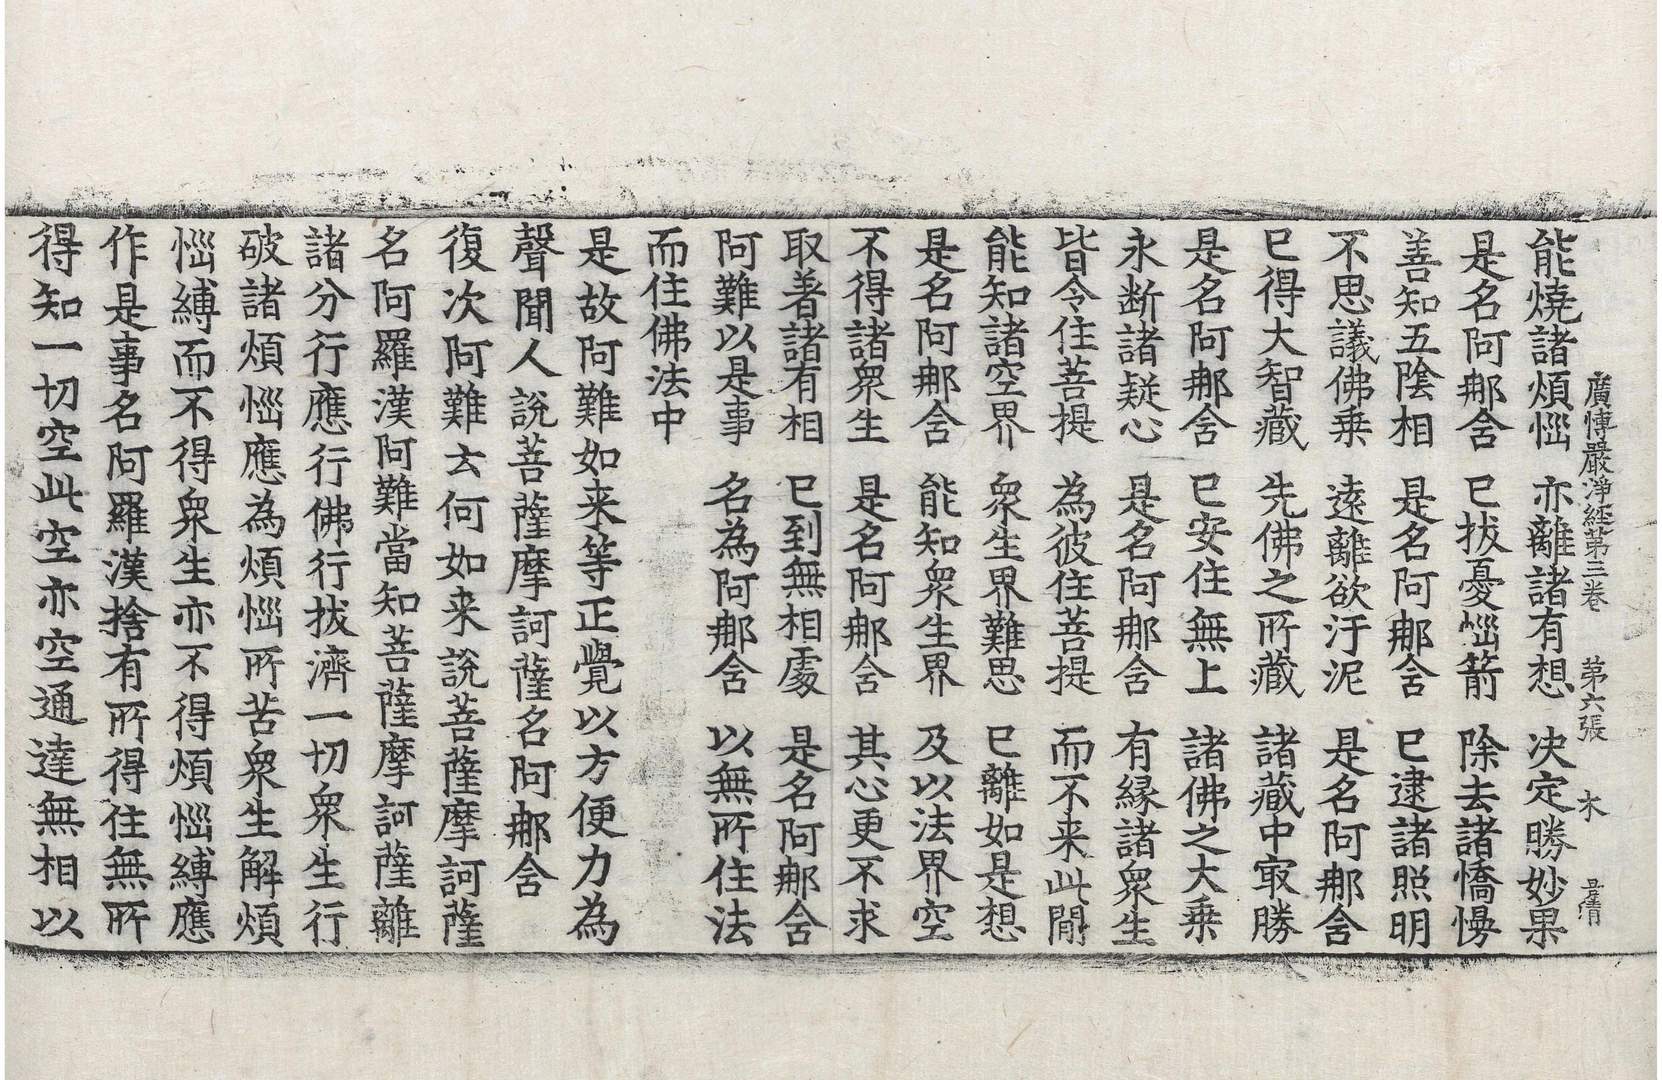 廣博嚴淨經第三卷　第六張　木
能燒諸煩惱　亦離諸有想　决定勝妙果
是名阿那舍　已拔憂惱箭　除去諸憍慢
善知五陰相　是名阿那舍　已逮諸照明
不思議佛乗　遠離欲汙泥　是名阿那舍
已得大智藏　先佛之所藏　諸藏中㝡勝
是名阿那舍　已安住無上　諸佛之大乗
永断諸疑心　是名阿那舍　有縁諸衆生
皆令住菩提　為彼住菩提　而不来此閒
能知諸空界　衆生界難思　已離如是想
是名阿那舍　能知衆生界　及以法界空
不得諸衆生　是名阿那舍　其心更不求
取著諸有相　已到無相處　是名阿那舍
阿難以是事　名為阿那舍　以無所住法
而住佛法中
是故阿難如来等正覺以方便力為
聲聞人說菩薩摩訶薩名阿那舍
復次阿難云何如来說菩薩摩訶薩
名阿羅漢阿難當知菩薩摩訶薩離
諸分行應行佛行拔濟一切衆生行
破諸煩惱應為煩惱所苦衆生解煩
惱縛而不得衆生亦不得煩惱縛應
作是事名阿羅漢捨有所得住無所
得知一切空此空亦空通達無相以